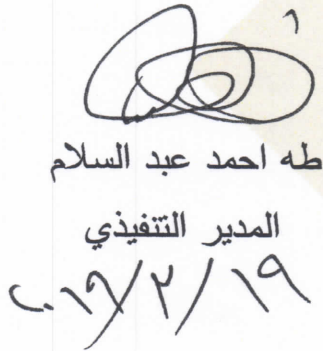 طه احمد عبد السلام
المدير التنفيذي
٢٠١٩/٢/١٩